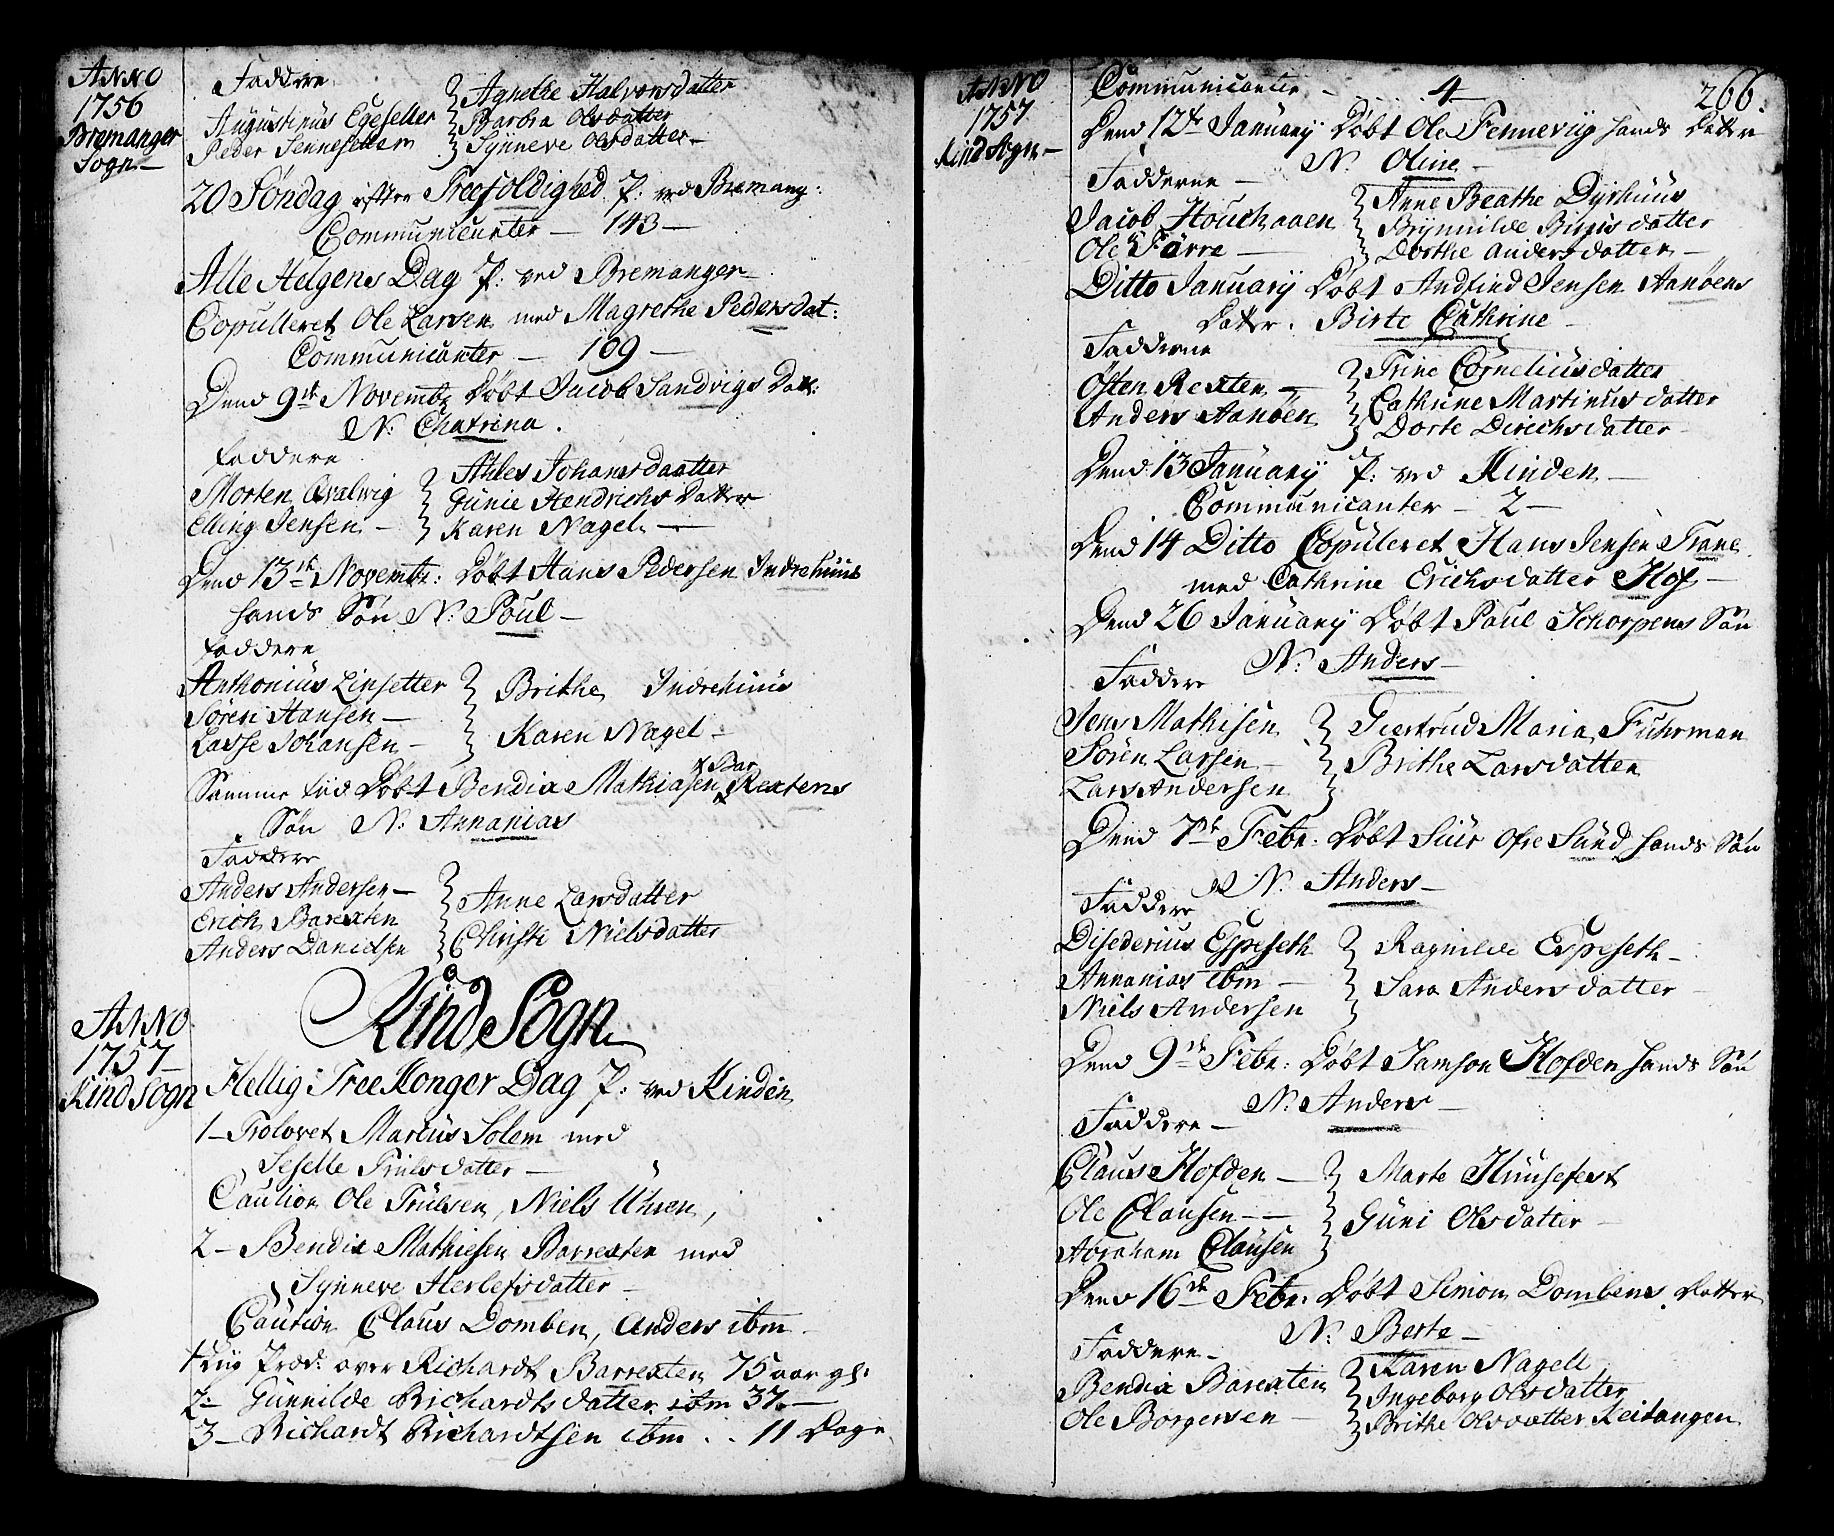 ANNO
1756
Bremanger
Sogn
Faddere
Augustinus Egesetter } Agnethe Halvorsdatter
Peder Sennesettem } Barbra Olsdatter
Synneve Olsdatter
20 Søndag efter Treefoldighed P: ved Bremang:
Communicanter — 143 —
Alle Helgens Dag P: ved Bremanger
Copulleret Ole Larsen med Magrethe Pedersdat:
Communicanter — 109 —
Dend 9de Novembr: Døbt Jacob Sandvigs Dat:
N: Chatrina.
Faddere
Morten Qvalvig } Ahles Johansdaatter
Elling Jensen } Gunie Hendrichs Datter
Karen Nagel
Dend 13de Novembr: Døbt Hans Pedersen Indrehuus
hands Søn N: Poul —
Faddere
Anthonius Linsetter } Brithe Indrehuus
Søren Hansen —
Lasse Johansen — } Karen Nagel —
Samme tid Døbt Bendix Mathiasen x Bar Rextens
Søn N: Annanias
Faddere
Anders Andersen — } Anne Larsdatter
Erich Barexten
Anders Danielsen } Christi Nielsdatter
ANNO
1757
Kind Sogn
Kind Sogn
Hellig Tree Konger Dag P: ved Kinden
1 — Trolovet Marcus Solem med
Seselle Trulsdatter —
Caution Ole Trulsen, Niels Uhren,
2 — Bendix Mathiesen Barrexten med
Synneve Herlefsdatter —
Caution Claus Domben, Anders ibm
Præd: over Richardt Barrexten 75 aar gl:
2 - Gunnilde Richardtsdatter ibm 37 —
3 — Richardt Richardtsen ibm . . 11 Dage
ANNO
1757
Kind Sogn —
Communicanter — 4 266.
Dend 12te January Døbt Ole Fennevig hands Datter
N: Oline —
Fadderne —
Jacob Houchaaen } Anne Beathe Dyrhuus
Ole Førre — } Brynnilde Biugs datter
Dorthe Andersdatter —
Ditto January Døbt Andfind Jensen Aanøens
Datter. Birte Cathrine —
Fadderne
Østen Rexten — } Trine Corneliusdatter
Anders Aanøen } Cathrine Martinusdatter
Dorte Dirichsdatter
Dend 13 January P: ved Kinden —
Communicanter — 2 —
Dend 14 Ditto Copuleret Hans Jensen Trane
med Cathrine Erichsdatter Hof —
Dend 26 January Døbt Paul Schorpens Søn
N: Anders —
Faddere
Jens Mathisen } Giertrud Maria Fuhrman
Søren Larsen — } Brithe Larsdatter
Lars Andersen
Dend 7de Febr: Døbt Siur Ofre Sund hands Søn
N: Anders —
Faddere
Disederius Espeseth } Ragnilde Espeseth —
Annanias ibm — } Sara Andersdatter
Niels Andersen
Dend 9de Febr: Døbt Samson Hofden hands Søn
N: Anders —
Faddere —
Claus Hofden — } Marte Huusefest
Ole Clausen — — } Guni Olsdatter
Abraham Clausen
Dend 16de Febr: Døbt Simon Dombens Datter
N: Berte —
Faddere —
Bendix Barexten } Karen Nagell
Ole Borgersen — } Ingeborg Olsdatter
Brithe Olsdatter Leitangen